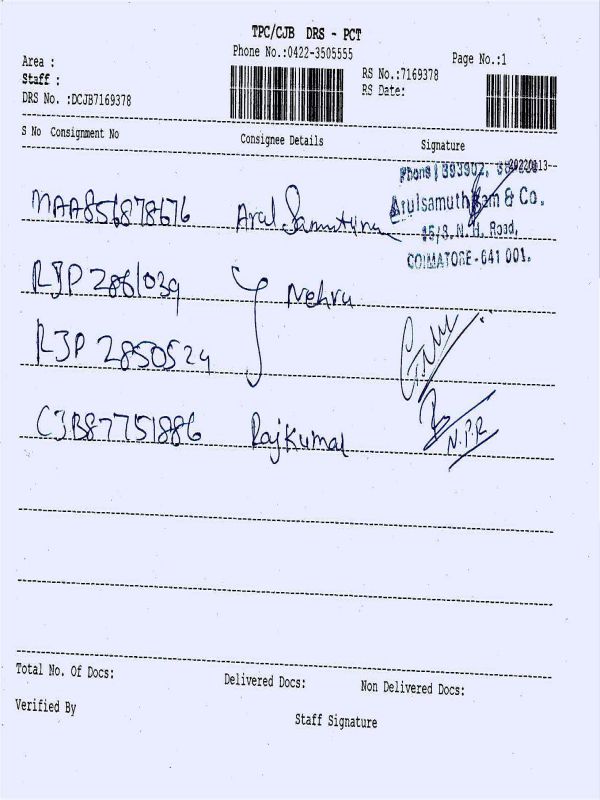 TPC/CJB DRS - PCT
Phone No.:0422-3505555
Page No.:1
Area :
Staff :
DRS No. :DCJB7169378
RS No.:7169378
RS Date:
S No Consignment No Consignee Details Signature
Phone | 393902,
20220113
Arulsamuthram & Co.
MAA856878676 Arul Samuthra
15/9. N. H. Road,
COIMATORE-641 001.
RJP 2861039 Nehru
RJP 2850524
CJB87751886 Rajkumar
N.P.R
Total No. Of Docs: Delivered Docs: Non Delivered Docs:
Verified By Staff Signature